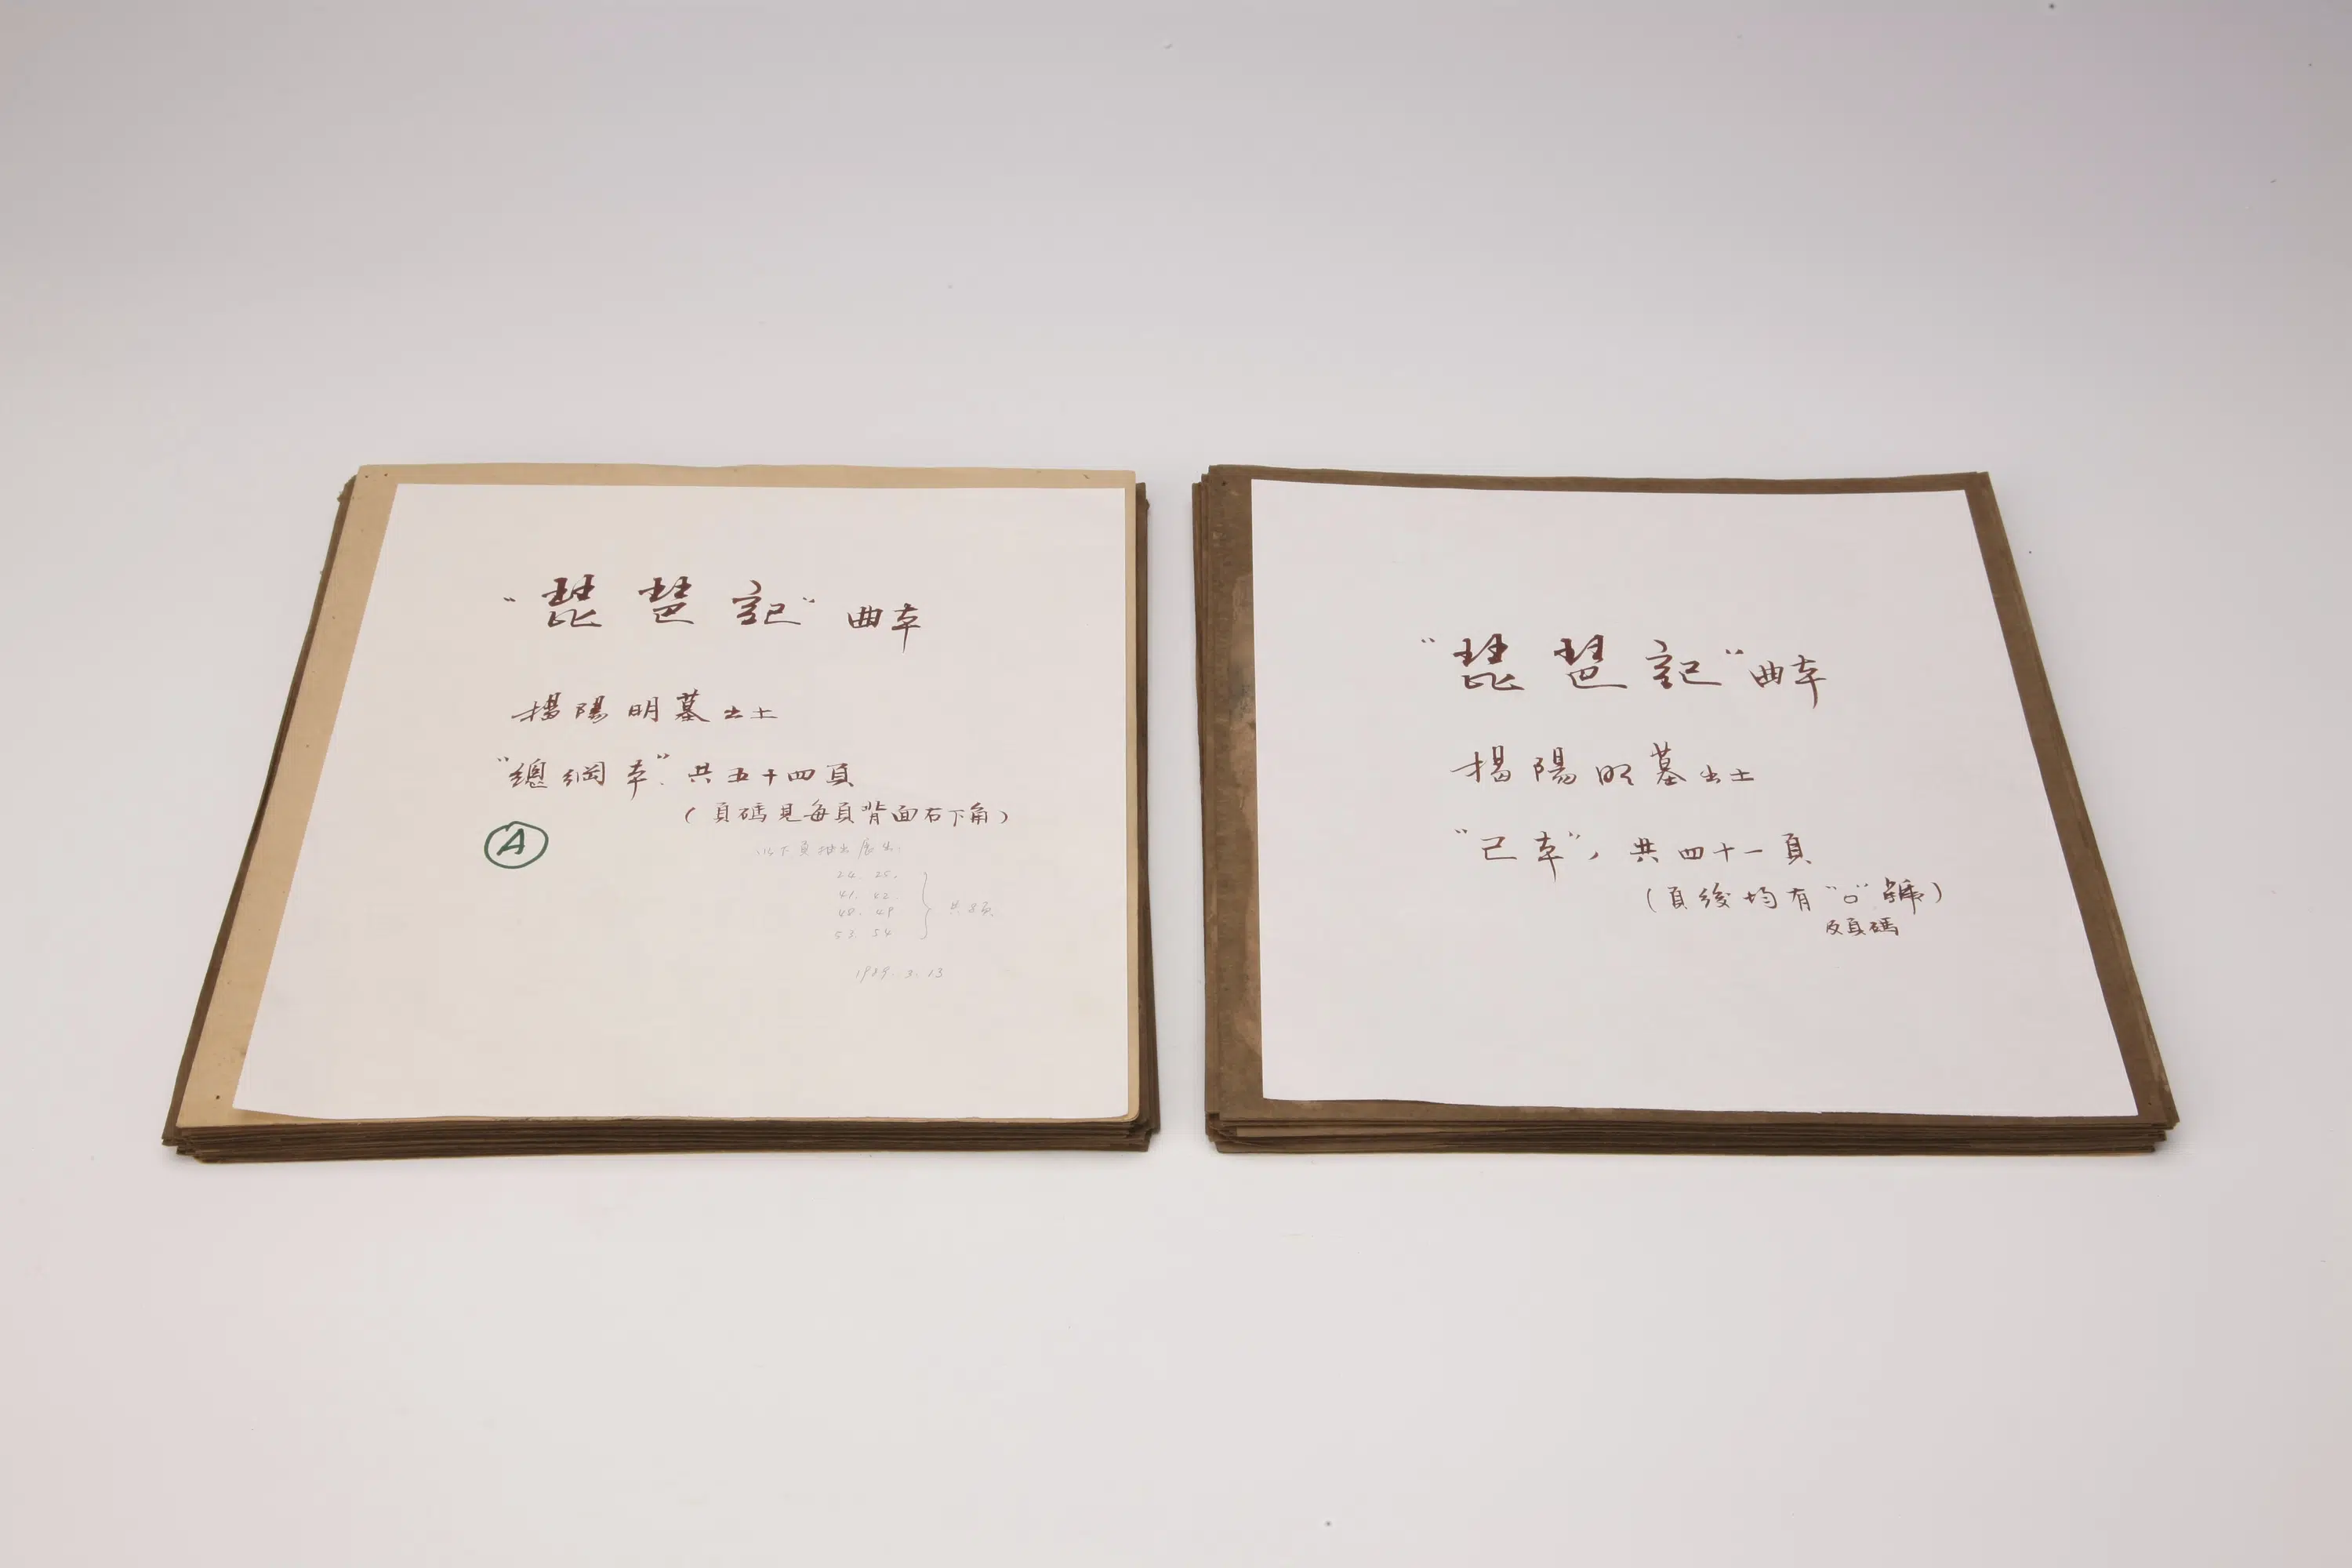 “琵琶記”曲本
揭陽明墓出土
“總綱本”共五十四頁
(頁碼見每頁背面右下角)
A
以下頁抽出展出:
24. 25.
41. 42.
48. 49
53. 54
共8頁
1989. 3. 13
“琵琶記”曲本
揭陽明墓出土
“己本”，共四十一頁
(頁後均有“□”號)
及頁碼